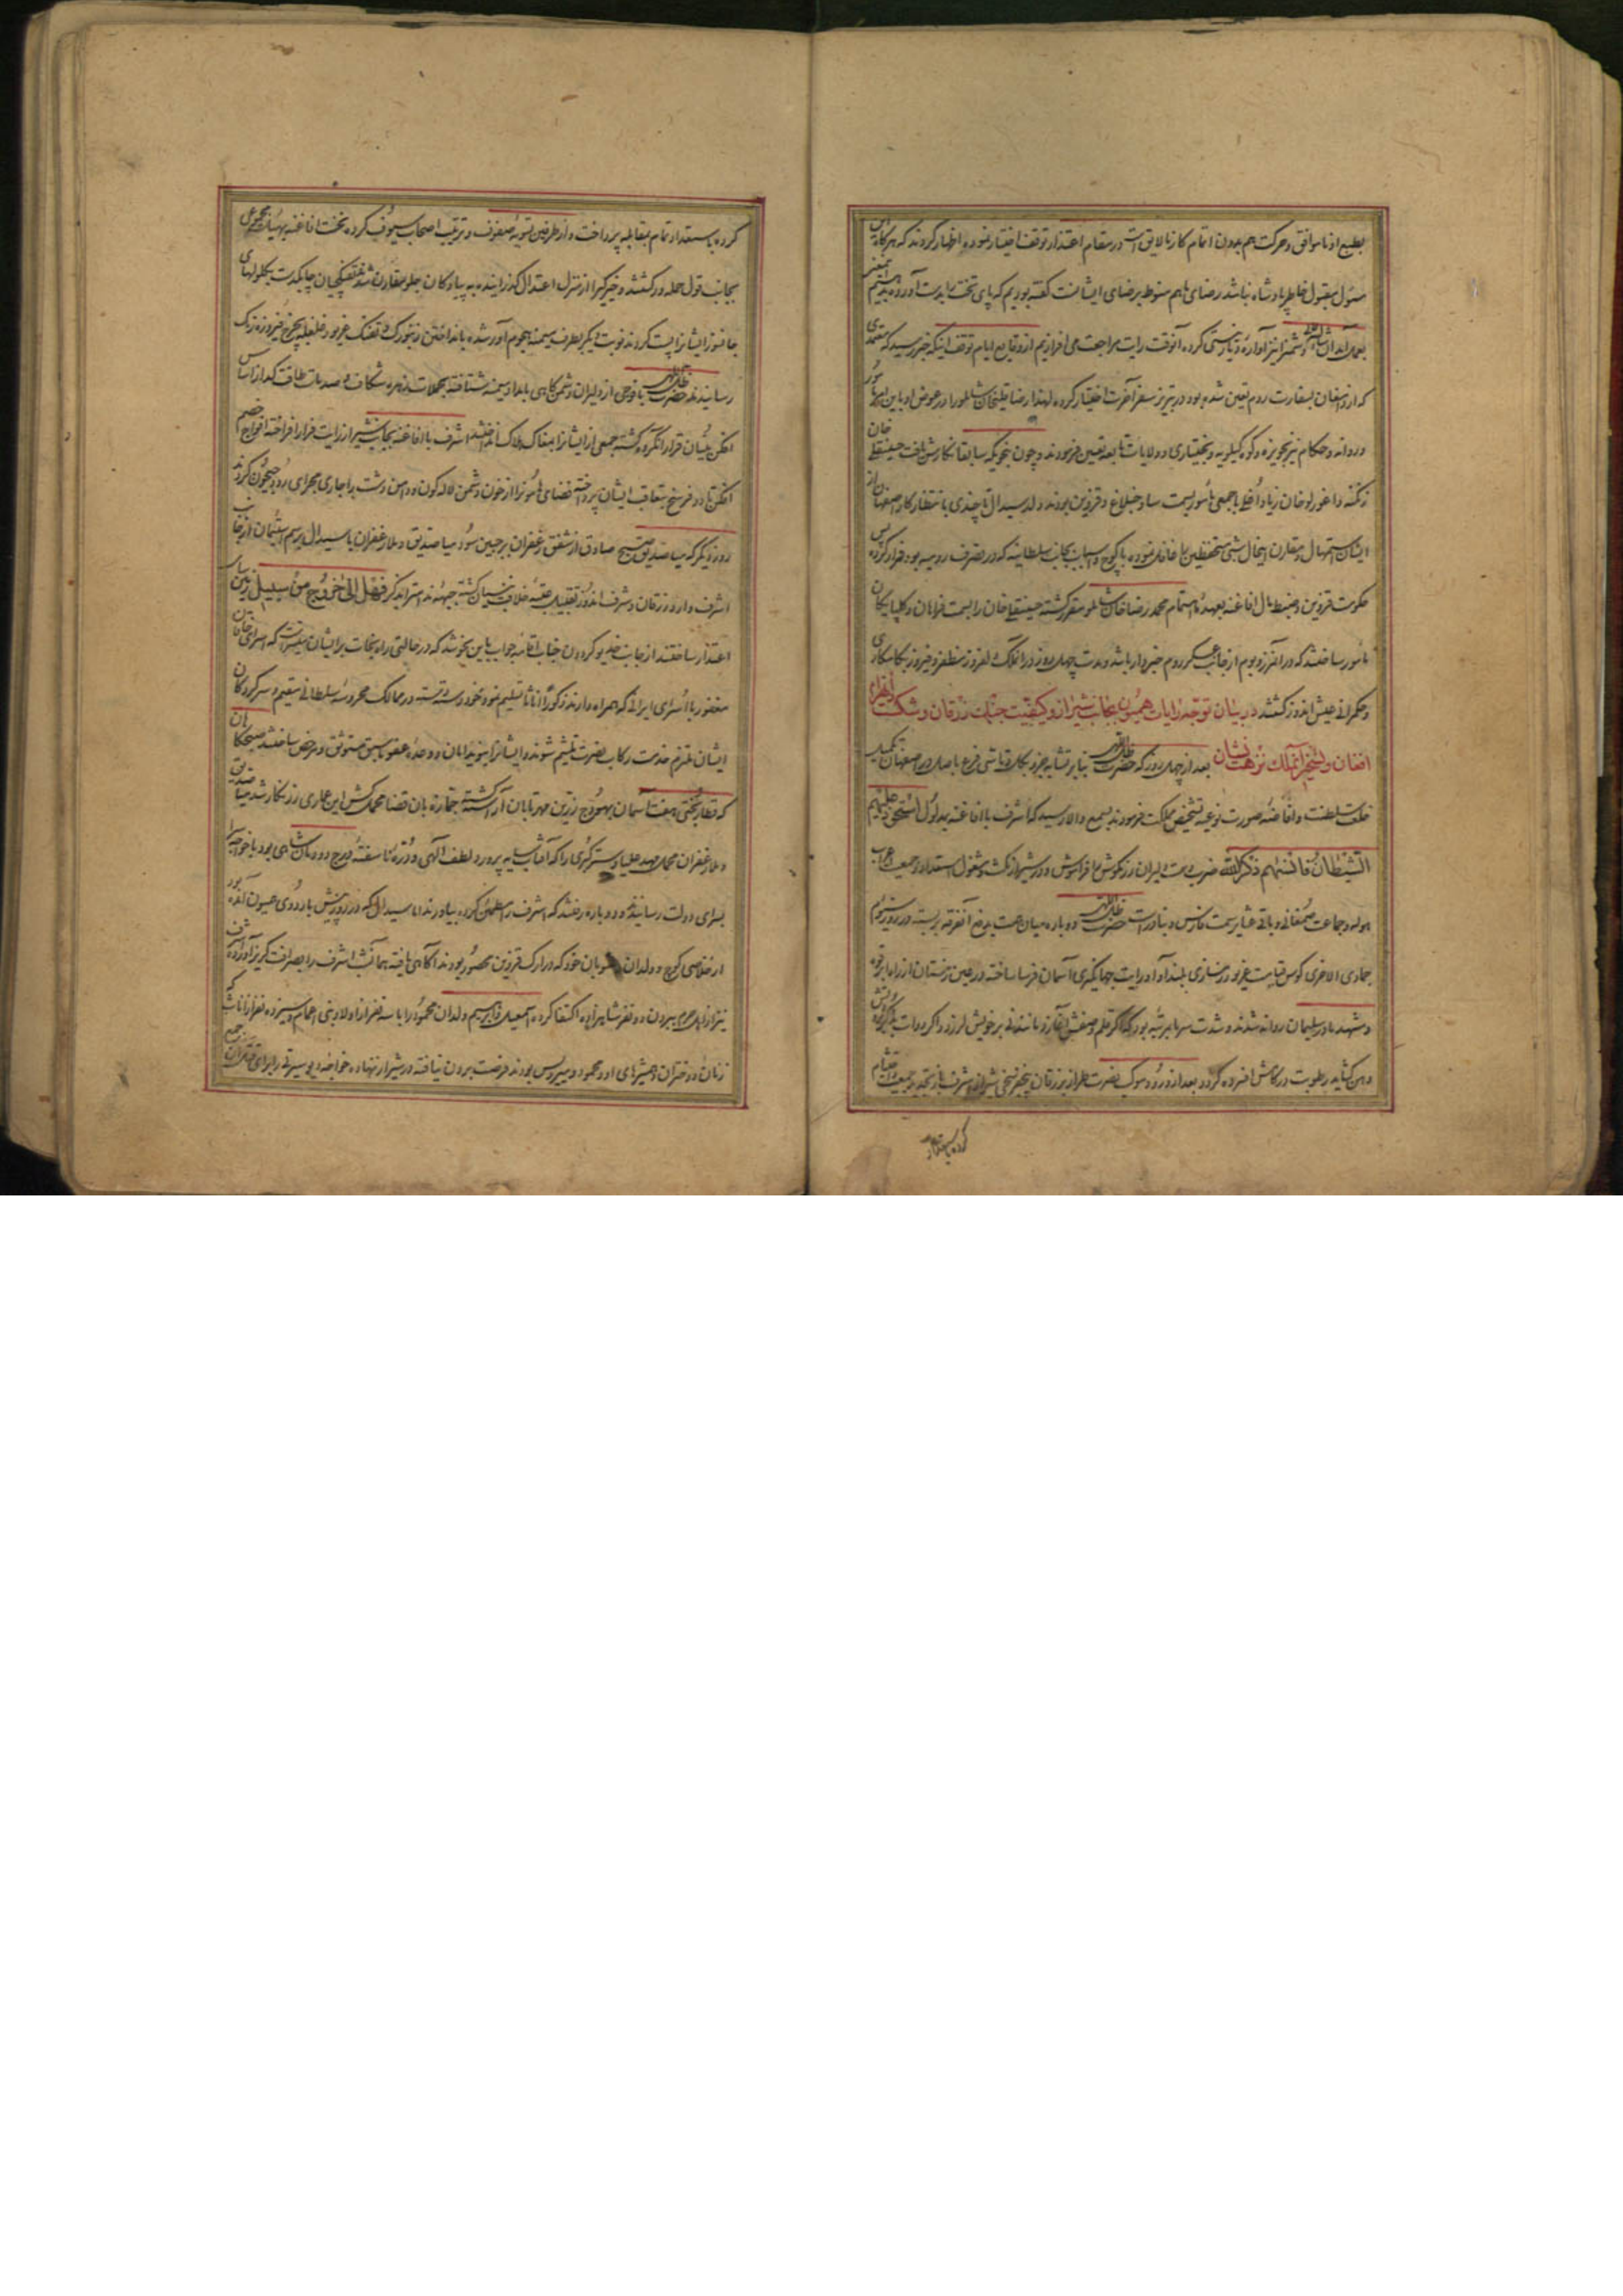 بطبع او ناموافق و حرکت هم بدون اتمام کار نالایق است در مقام اعتذار توقف اختیار نموده اظهار کردند که هرگاه این
مسئول مقبول خاطر پادشاه نباشد رضای ما هم منوط برضای ایشانست گفته بودیم که پای تخت را بدست آورده
بعمل آید آن شاء الله دشمن را نیز آواره دیار نیستی کرده آنوقت رایت مراجعت می افرازیم از وقایع ایام توقف اینکه خبر رسید که
که از اصفهان بسفارت روم تعیین شده بود در تبریز سفر آخرت اختیار کرده لهذا رضا قلیخان شاملو را در عوض او باین امر مأمور
و روانه و حکام نیز بحویزه و کوه کیلویه و بختیاری و ولایات نابعد تعیین فرمودند و چون بنحویکه سابقا نگارش یافت حسینقلی خان
زنگنه داغورلو خان زیاد اغلی با جمعی مأمور بسمت ساوخبلاغ و قزوین بودند ولد سیدال تا چندی بانتظار کار اصفهان از
ایشان استمهال و مقارن اینحال شبی مستحفظین را غافل نموده با کوچ و اسباب بجانب سلطانیه که در تصرف رومیه بود فرار کرده پس
حکومت قزوین و ضبط مال افاغنه بعهده اهتمام محمد رضا خان شاملو مقرر گشته حسینقلی خان را بسمت فراهان و گلپایگان
مأمور ساختند که در آنمرز و بوم از جانب عسکر روم خبردار باشد و مدت چهل روز در آنملک دلفروز مظفر و فیروز بکامکاری
و حکمرانی عیش اندوز گشتند در بیان توجه رایات همیون بجانب شیراز و کیفیت جنگ زرقان و شکست اشرف
افغان و تسخیر آنملک نزهت نشان بعد از چهل روز که حضرت ظل اللهی بنابر تشابه جزو بکل و تأسی فرع باصل در اصفهان تکمیل
خلعت سلطنت و افاضه صورت نوعیه تشخیص مملکت فرمودند بسمع والا رسید که اشرف با افاغنه بمدلول استحوذ علیهم
الشیطان فانسیهم ذکر الله ضرب دست دلیران رزمکوش را فراموش و در شیراز مکث و مشغول استعداد و جمعیت اعراب
هوله و جماعت صمغانی و باقی عشایر سمت فارس و بنادر است حضرت ظل اللهی دوباره میان همت بدفع آنفرقه بربسته در روز سیوم
جمادی الاخری کوس توابت غریو در نسازی بلند آوا و رایت جهانگیری آسمان فرسا ساخته در عین زمستان از راه ابرقوه
و مشهد مادر سلیمان روانه شدند و شدت سرما بمرتبه بود که اگر قلم وصفش آغازد مانند نی بر خویش لرزد و اگر دوات بذکرش
دهن گشاید رطوبت در کامش افسرده گردد بعد از ورود موکب نصرت طراز بزرقان پنج فرسخی شیراز اشرف باز تجدید جمعیت و احتشام
کرده باستعداد
کرده باستعداد تمام بمقابله پرداخت و از طرفین تسویه صفوف و ترتیب اصحاب سیوف کرده نخست افاغنه بهیأت مجموعی
بجانب قول حمله ور گشتند و خیرگی را از منزل اعتدال گذرانیده به پیادگان جلو مقارن شدند تفنگچیان چابکدست بگلولهای
جانسوز ایشانرا پست کردند نوبت دیگر بطرف میمنه هجوم آور شده بانداختن زنبورک و تفنگ غریو و غلغله بچرخ فیروزه رنگ
رسانیدند حضرت ظل اللهی با فوجی از دلیران دشمن کاهی بامداد میمنه شتافته بحملات زهره شکاف و صدمات طاقت گداز اساس
افکن بنیان قرار آنگروه گشته جمعی از ایشانرا بمغاک هلاک انداختند اشرف با افاغنه بجانب شیراز رایت فرار افراخته افواج خصم
افکن تا دو فرسخ بتعاقب ایشان پرداخته فضای هامون را از خون دشمن لاله گون و دامن دشت را جاری مجرای رود جیحون کردند
روز دیگر که میاصدیق صبح صادق از شفق زعفران بر جبین سود میا صدیق و ملا زعفران با سیدال برسم استیمان از جانب
اشرف وارد زرقان و شرف اندوز تقبیل عتبه خلافت بنیان گشته جبهه سای استر اندگر فهل الی خروج من سبیل زمین سای
اعتذار ساختند از جانب خدیو گردون جناب اقامه جواب باین نحو شد که در حالتی راه نجات بر ایشان میسر است که اسرای خاقان
مغفور با اسرای ایرانی که همراه دارند ذکورا اناثا تسلیم نموده خود دسته دسته در ممالک محروسه سلطانی مقیم و سرکردگان
ایشان ملتزم خدمت رکاب نصرت ملتئم شوند و ایشانرا بنوید امان و وعده عفو ما سبق مستوثق و مرخص ساختند صبحگاهان
که قطار بختی هفت آسمان بهودج زرین مهر تابان آراسته جمازه بان قضا محمل کش این عماری زرنگار شد میا صدیق
و ملا زعفران محمل مهد علیا و ستر کبری را که آفتاب سایه پرورد لطف الهی و دره ناسفته درج دودمان شاهی بود با خواجه سرا
بسرای دولت رسانیده و دوباره رفتند که اشرف را مطمئن کرده بیاورند اما سیدال که در روز پیش باردوی همیون آمده بود
از خلاصی کوچ و ولدان و منسوبان خود که در ارک قزوین محصور بودند آگاهی یافته بهمانشب اشرف را بصرافت گریز آورده اشرف
نیز از اهل حرم بیرون دو نفر شاهزاده اکتفا کرده اسمعیل و ابراهیم ولدان محمود را با سه نفر از اولاد بنی اعمام و سیزده نفر از اناث که
زنان و دختران و همشیرهای او و محمود و میرویس بودند فرصت بردن نیافته در شیراز نهاده خواجه دیو سیرتی را برای قتل آن جمع